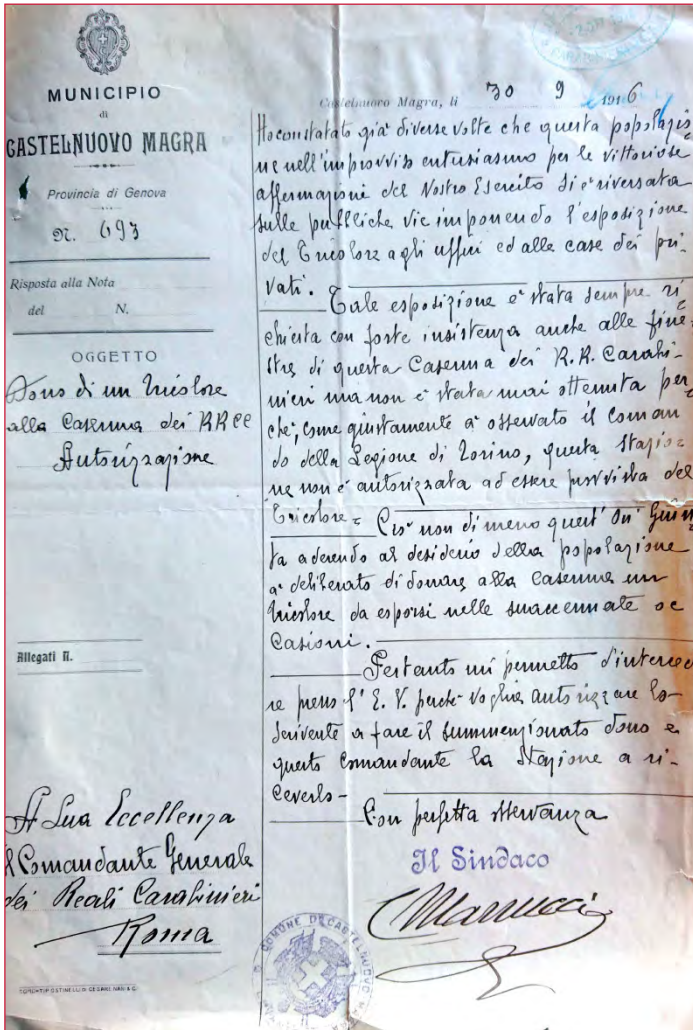 MUNICIPIO
di
CASTELNUOVO MAGRA
Provincia di Genova
N. 693
Risposta alla Nota
del N.
OGGETTO
Dono di un tricolore
alla Caserma dei RRCC
Autorizzazione
Allegati N.
A Sua Eccellenza
Il Comandante Generale
dei Reali Carabinieri
Roma
Castelnuovo Magra, li 30 9 1916
Ho constatato già diverse volte che questa popolazio
ne nell'improvviso entusiasmo per le vittoriose
affermazioni del Nostro Esercito si è riversata
sulle pubbliche vie imponendo l'esposizione
del Tricolore agli uffici ed alle case dei pri-
vati.
Tale esposizione è stata sempre ri
chiesta con forte insistenza anche alle fine-
stre di questa Caserma dei R.R. Carabi-
nieri ma non è stata mai ottenuta per
chè, come giustamente à osservato il coman
do della Legione di Torino, questa stazio-
ne non è autorizzata ad essere provvista del
Tricolore =
Ciò non di meno quest' On Giun
ta aderendo al desiderio della popolazione
à deliberato di donare alla caserma un
tricolore da esporsi nelle suaccennate oc
casioni.
Pertanto mi permetto d'interced
re presso l'E. V. perchè voglia autorizzare lo
scrivente a fare il summenzionato dono e
questo comandante la Stazione a ri-
ceverlo -
Con perfetta osservanza
Il Sindaco
COMUNE DI CASTELNUOVO